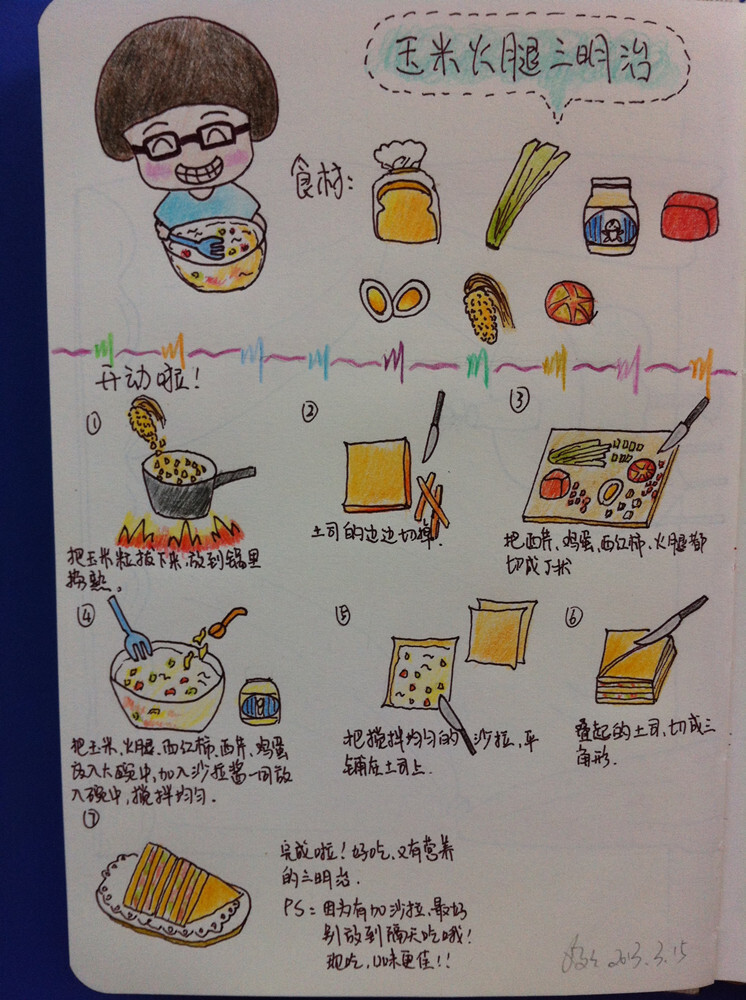 玉米火腿三明治
食材:
开动啦!
①
把玉米粒拔下来,放到锅里
熟。
②
土司的边边切掉.
③
把西芹、鸡蛋、西红柿、火腿都
切成丁状
④
把玉米、火腿、西红柿、西芹、鸡蛋
放入大碗中,加入沙拉酱一同放
入碗中,搅拌均匀.
⑤
把搅拌均匀的沙拉,平
铺在土司上.
⑥
叠起的土司,切成三
角形.
⑦
完成啦!好吃、又有营养
的三明治.
PS=因为有加沙拉、最好
别放到隔天吃哦!
现吃,口味更佳!!
2013.3.15